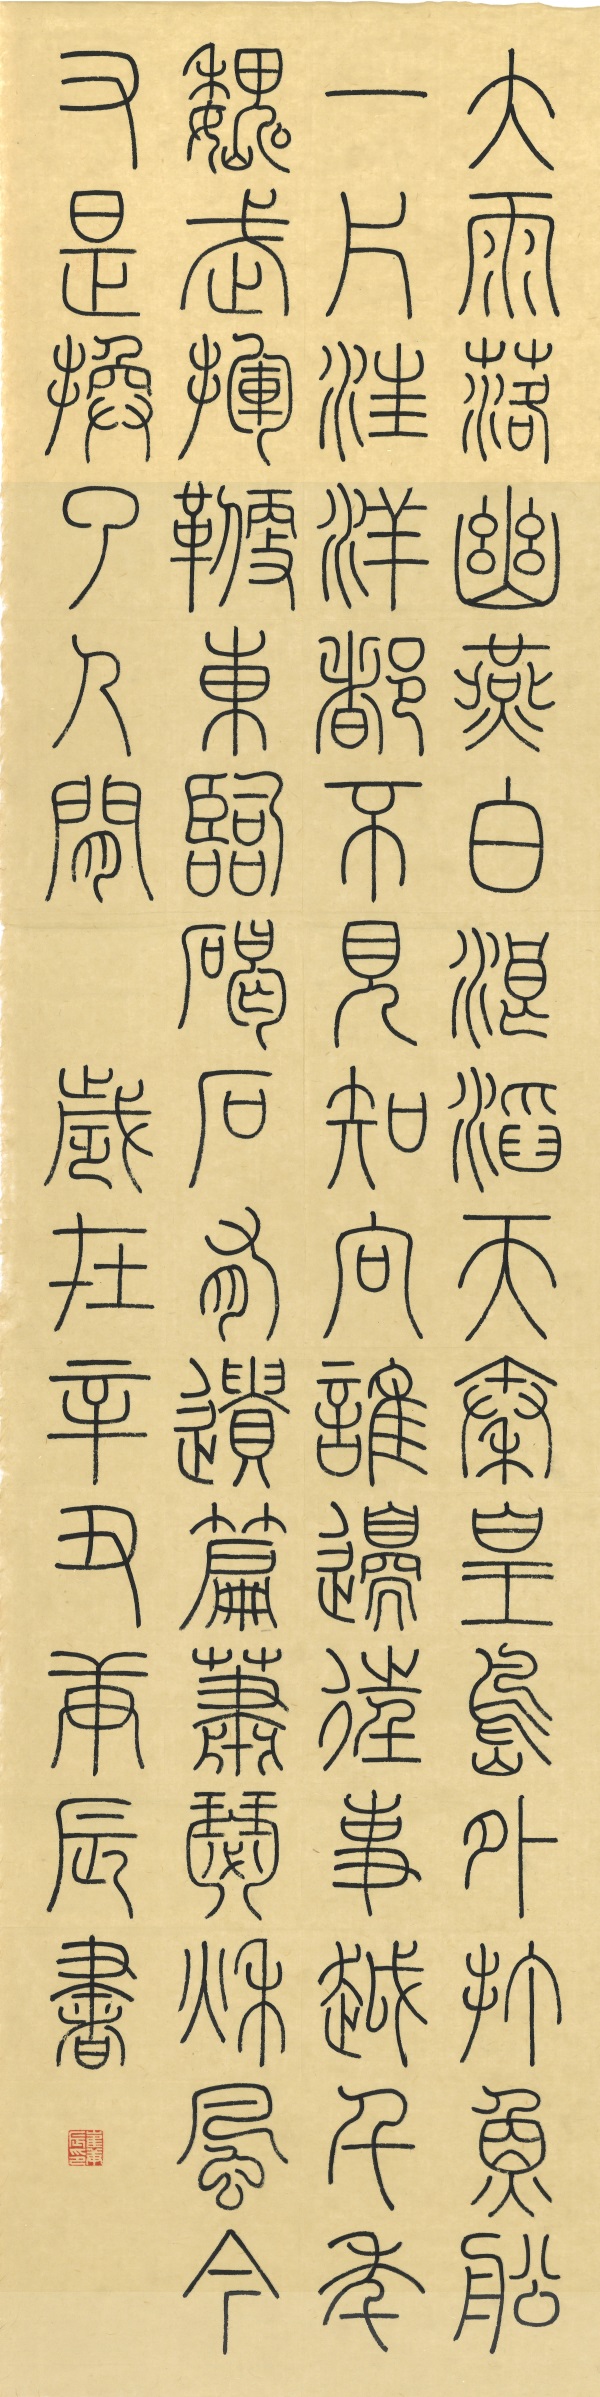 大雨落幽燕白浪滔天秦皇島外打魚船
一片汪洋都不見知向誰邊往事越千年
魏武揮鞭東臨碣石有遺篇蕭瑟秋風今
又是換了人間 歲在辛丑庚辰書